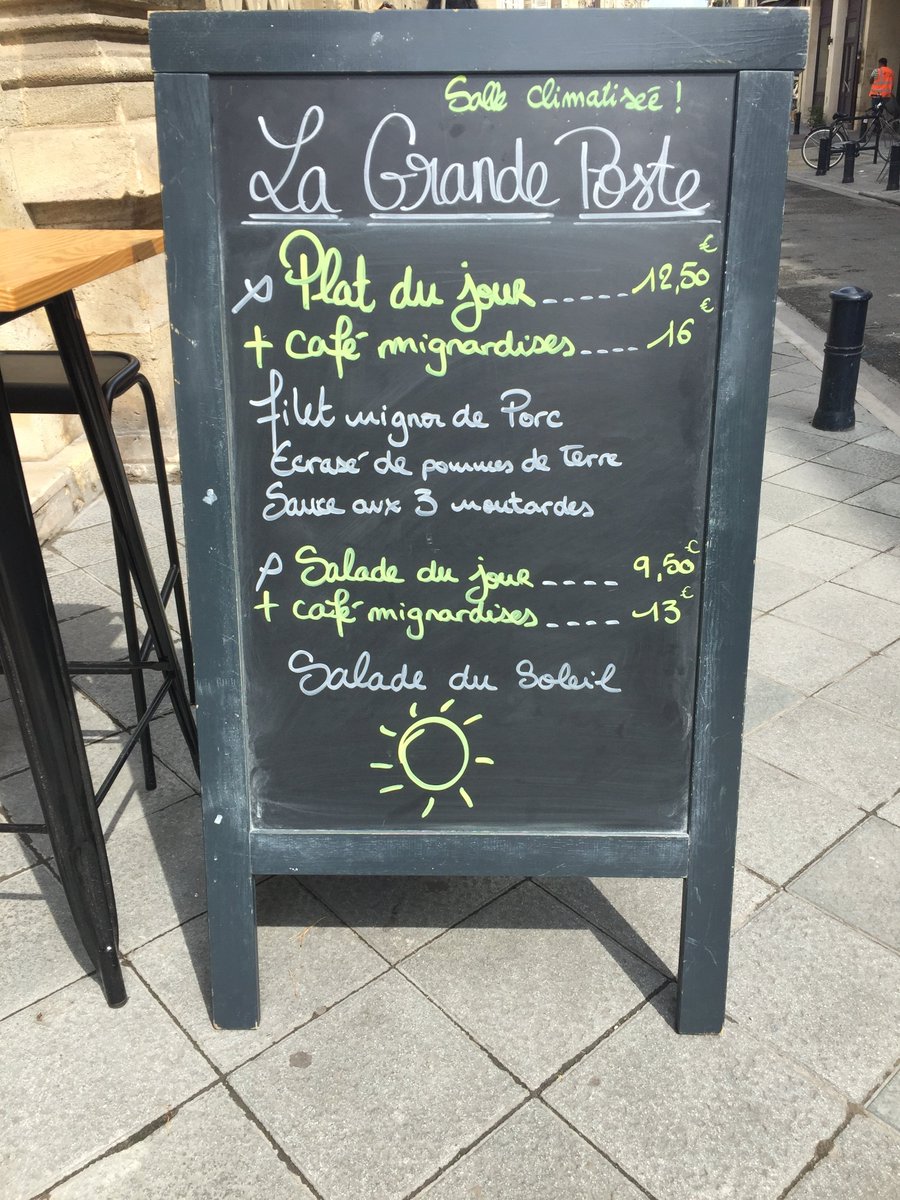 Salle climatisée !
La Grande Poste
Plat du jour ..... 12,50€
+ café mignardises .... 16€
filet mignon de Porc
Ecrasé de pommes de Terre
Sauce aux 3 moutardes
Salade du jour .... 9,50€
+ café mignardises .... 13€
Salade du Soleil